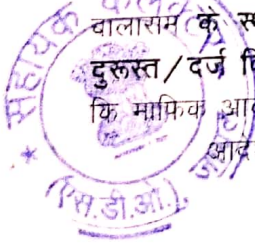 वालाराम के स्
दुरूस्त/दर्ज
कि माफिक आ
आदे
सहायक कलक्
(एस.डी.ओ.)